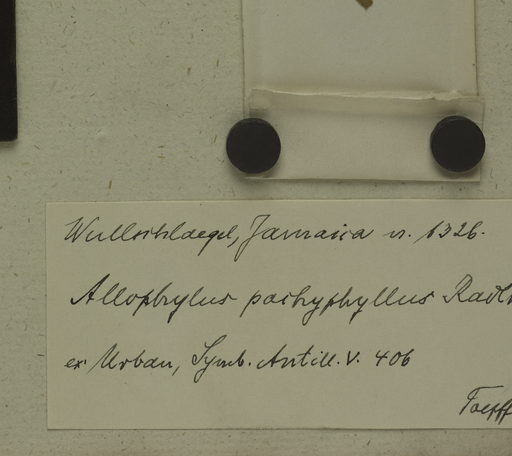 Wullschlaegel, Jamaica n. 1326.
Allophylus pachyphyllus Radl
ex Urban, Symb. Antill. V. 406
Toepff